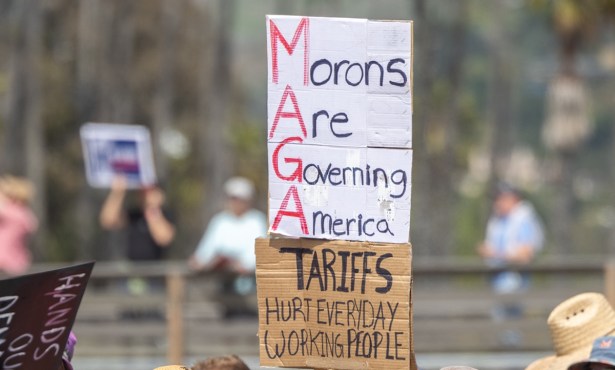 Morons
Are
Governing
America
TARIFFS
HURT EVERYDAY
WORKING PEOPLE
HANDS